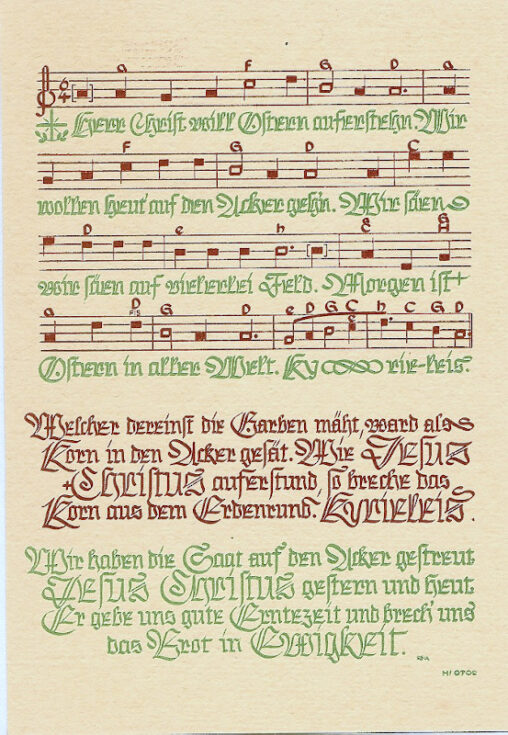 a F G D a
6 4
Herr Christ will Ostern auferstehn. Wir
F G D C
wollen heut' auf den Acker gehn. Wir säen
D e h
wir säen auf vielerlei Feld. Morgen ist
a D G D e D G C h C G D
FIS e
Ostern in aller Welt. Ky rie-leis.
Welcher dereinst die Garben mäht, ward als
Korn in den Acker gesät. Wie JESUS
CHRISTUS auferstund, so breche das
Korn aus dem Erdenrund. Kyrieleis.
Wir haben die Saat auf den Acker gestreut
JESUS CHRISTUS gestern und heut
Er gebe uns gute Erntezeit und brech' uns
das Brot in EWIGKEIT.